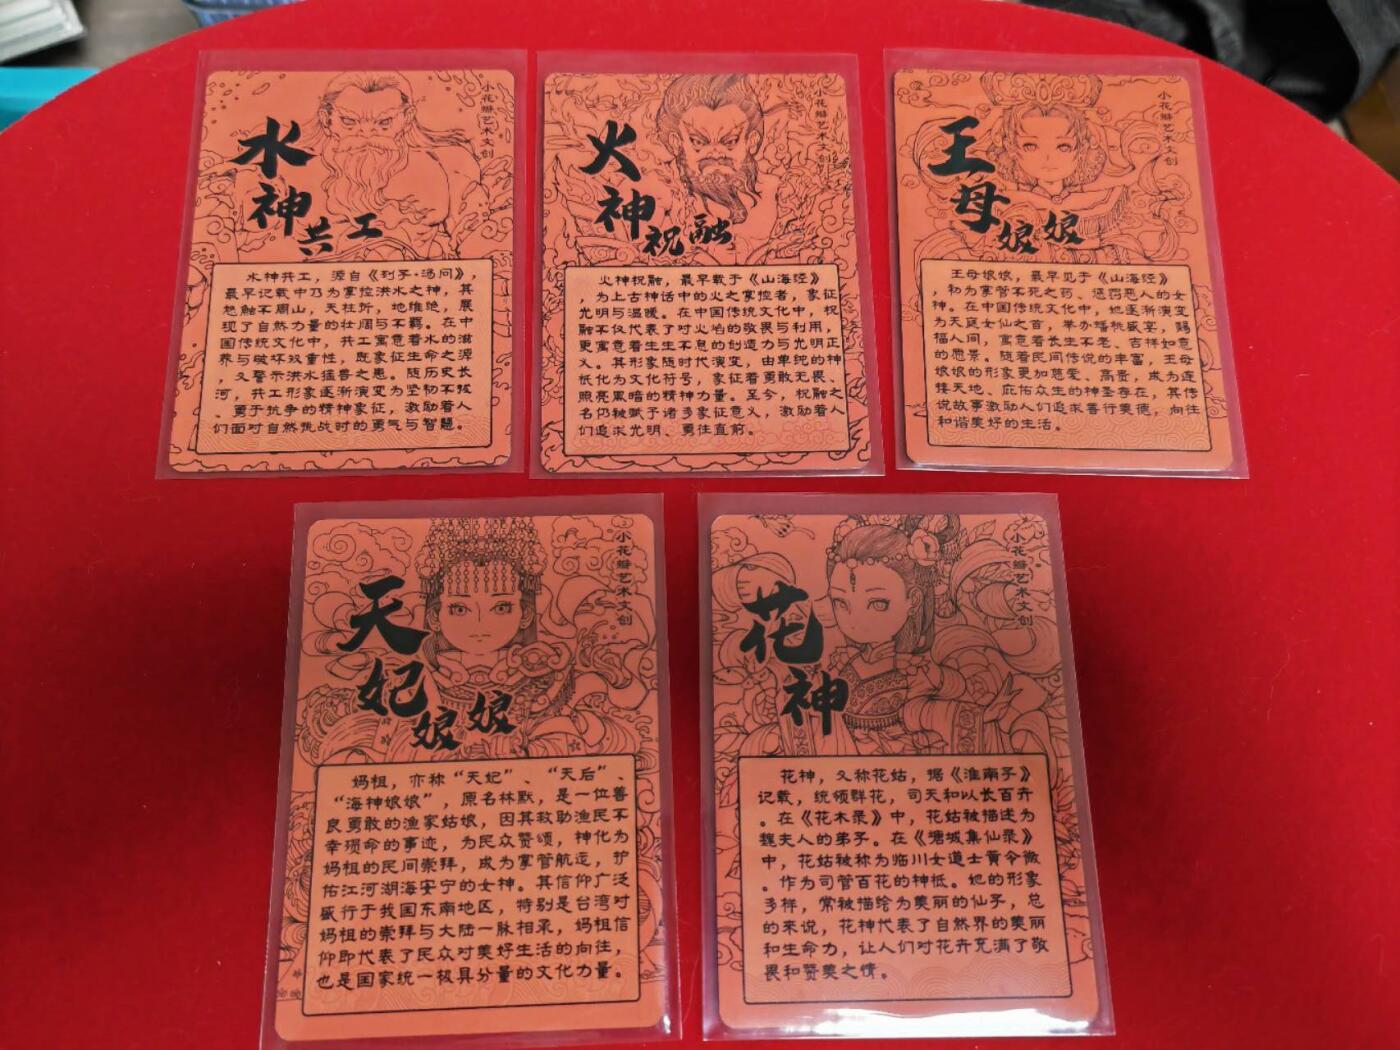 小花瓣艺术文创
水
神
共工
水神共工，源自《列子·汤问》，
最早记载中乃为掌控洪水之神，其
怒触不周山，天柱折，地维绝，展
现了自然力量的壮阔与不羁。在中
国传统文化中，共工寓意着水的滋
养与破坏双重性，既象征生命之源
，又警示洪水猛兽之患。随历史长
河，共工形象逐渐演变为坚韧不拔
、勇于抗争的精神象征，激励着人
们面对自然挑战时的勇气与智慧。
小花瓣艺术文创
火
神
祝融
火神祝融，最早载于《山海经》
，为上古神话中的火之掌控者，象征
光明与温暖。在中国传统文化中，祝
融不仅代表了对火焰的敬畏与利用，
更寓意着生生不息的创造力与光明正
义。其形象随时代演变，由单纯的神
祇化为文化符号，象征着勇敢无畏、
照亮黑暗的精神力量。至今，祝融之
名仍被赋予诸多象征意义，激励着人
们追求光明、勇往直前。
小花瓣艺术文创
王
母
娘娘
王母娘娘，最早见于《山海经》
，初为掌管不死之药、惩罚恶人的女
神。在中国传统文化中，她逐渐演变
为天庭女仙之首，举办蟠桃盛宴，赐
福人间，寓意着长生不老、吉祥如意
的愿景。随着民间传说的丰富，王母
娘娘的形象更加慈爱、高贵，成为连
接天地、庇佑众生的神圣存在，其传
说故事激励人们追求善行美德，向往
和谐美好的生活。
小花瓣艺术文创
天
妃
娘娘
妈祖，亦称“天妃”、“天后”、
“海神娘娘”，原名林默，是一位善
良勇敢的渔家姑娘，因其救助渔民不
幸殒命的事迹，为民众赞颂，神化为
妈祖的民间崇拜，成为掌管航运，护
佑江河湖海安宁的女神。其信仰广泛
盛行于我国东南地区，特别是台湾对
妈祖的崇拜与大陆一脉相承，妈祖信
仰即代表了民众对美好生活的向往，
也是国家统一极具分量的文化力量。
小花瓣艺术文创
花
神
花神，又称花姑，据《淮南子》
记载，统领群花，司天和以长百卉
。在《花木录》中，花姑被描述为
魏夫人的弟子。在《墉城集仙录》
中，花姑被称为临川女道士黄令微
。作为司管百花的神祇。她的形象
多样，常被描绘为美丽的仙子，总
的来说，花神代表了自然界的美丽
和生命力，让人们对花卉充满了敬
畏和赞美之情。